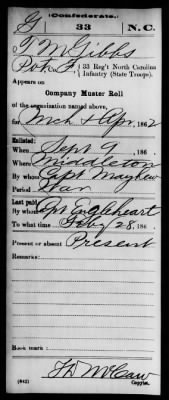 Confederate.
G 33 N.C.
T M Gibbs
Pvt, Co. F, 33 Reg't North Carolina
Infantry (State Troops).
Appears on
Company Muster Roll
of the organization named above,
for Mch & Apr, 1862
Enlisted:
When Sept 9, 186 .
Where Middleton
By whom Capt Mayhew
Period War
Last paid:
By whom Capt Engleheart
To what time Feby 28, 186 .
Present or absent Present
Remarks:
Book mark:
(642) T D McCaw
Copyist.